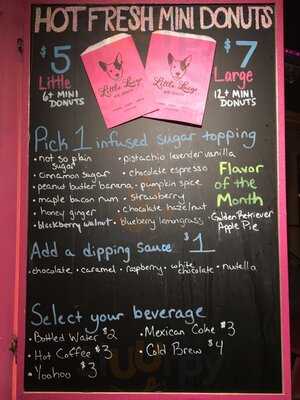 HOT FRESH MINI DONUTS
$5
Little
6+ MINI
DONUTS
Little Lucy
Little Lucy
$7
Large
12+ MINI
DONUTS
Pick 1 infused sugar topping
• not so plain sugar
• Cinnamon sugar
• peanut butter banana
• maple bacon rum
• honey ginger
• blackberry walnut
• pistachio lavender vanilla
• chocolate espresso
• pumpkin spice
• strawberry
• chocolate hazelnut
• blueberry lemongrass
Flavor
of the
Month
• Golden Retriever
Apple Pie
Add a dipping sauce $1
• chocolate • caramel • raspberry • white chocolate • nutella
Select your beverage
• Bottled Water $2
• Hot Coffee $3
• Yoohoo $3
• Mexican Coke $3
• Cold Brew $4